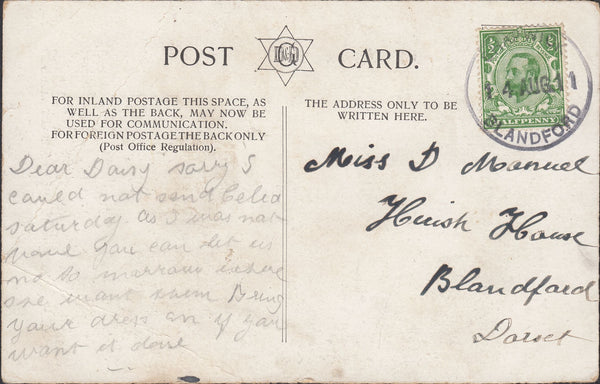 POST CARD.
FOR INLAND POSTAGE THIS SPACE, AS
WELL AS THE BACK, MAY NOW BE
USED FOR COMMUNICATION.
FOR FOREIGN POSTAGE THE BACK ONLY
(Post Office Regulation).
Dear Daisy sorry I
could not send
saturday as I was not
you can let us
no to morrow
she want Bring
your dress on if you
want it done
THE ADDRESS ONLY TO BE
WRITTEN HERE.
Miss D Manuel
House
Blandford
Dorset
4 AUG 11
BLANDFORD
HALFPENNY